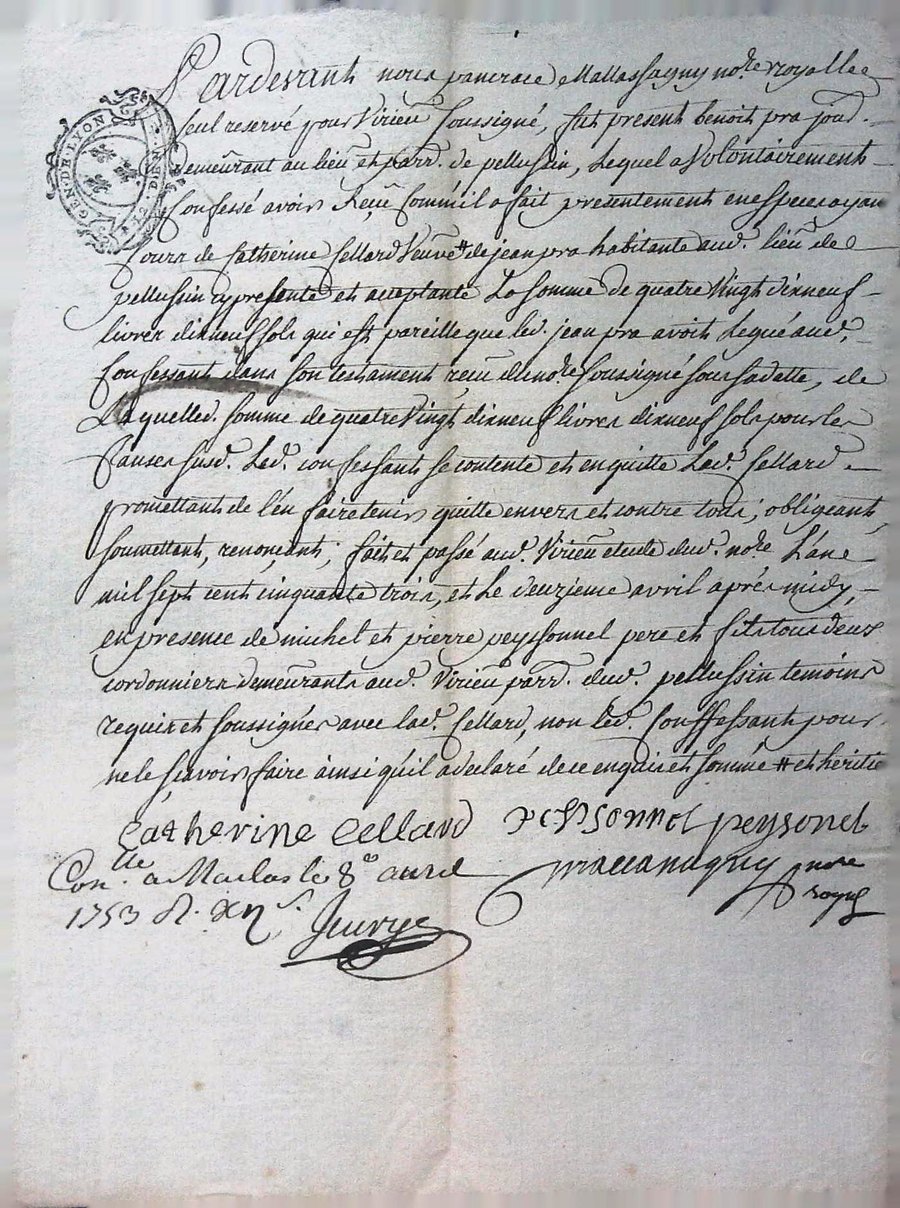 GEN. DE LYON
Pardevant nous pancrace Mallassagny no.re royalle
seul reservé pour Virieu soussigné, fut present benoit pra jou.d.
demeurant au lieu et parr.e de pellussin, Lequel a Volontairement
Confessé avoir Reçeu Comme il a fait presentement en especes ayant
Cours de Catherine Cellard Veuve # de jean pra habitante aud. lieu de
pellussin cy presente et acceptante La somme de quatre Vingt dixneuf
livres dixneuf sols qui est pareille que led. jean pra avoit Legué aud.
Confessant dans son testament reçu du no.re soussigné sous sa datte, de
Laquelle d. somme de quatre Vingt dixneuf livres dixneuf sols pour les
Causes susd. Led. confessant se contente et en quitte Lad. Cellard
promettant de l'en faire tenir quitte envers et contre tous; obligeant,
soumettant, renonçant; fait et passé aud. Virieu etude dud. no.re L'an
mil sept cent cinquante trois, et Le deuzieme avril aprés midy,
en presence de michel et pierre peyssonnel pere et fils tous deux
cordonniers demeurants aud. Virieu parr.e dud. pellussin temoins
requis et soussignés avec lad. Cellard, non led. Conffessant pour
ne le sçavoir faire ainsi qu'il a declaré de ce enquis et sommé # et heritie
Catherine Cellard peysonnel peysonel
Con.lle a Maclas le 8e avril mallassagny no.re
1753 royal